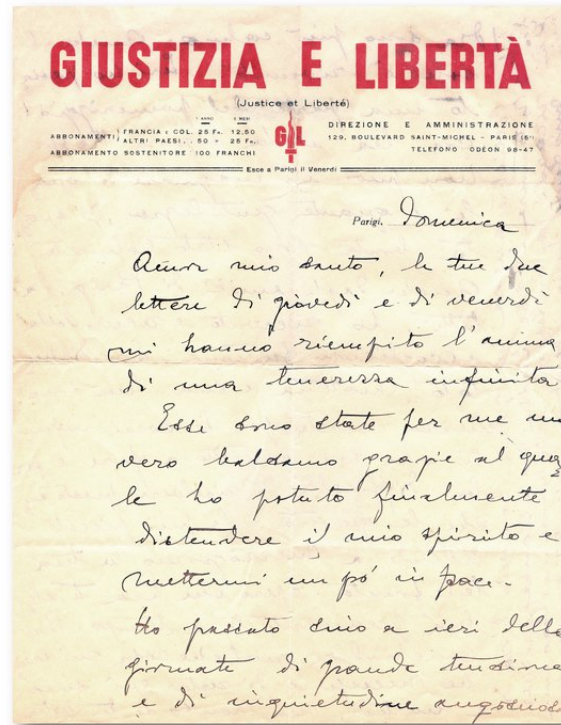 GIUSTIZIA E LIBERTÀ
(Justice et Liberté)
1 ANNO 6 MESI
ABBONAMENTI FRANCIA: COL. 25 Fr. 12,50
ALTRI PAESI, . 50 » 25 Fr.
ABBONAMENTO SOSTENITORE 100 FRANCHI
GL
DIREZIONE E AMMINISTRAZIONE
129, BOULEVARD SAINT-MICHEL - PARIS (5e)
TELEFONO ODÉON 98-47
Esce a Parigi il Venerdì
Parigi, Domenica
Amor mio santo, le tue due
lettere di giovedì e di venerdì
mi hanno riempito l'anima
di una tenerezza infinita
Esse sono state per me un
vero balsamo grazie al qua
le ho potuto finalmente
distendere il mio spirito e
mettermi un pò in pace.
Ho passato sino a ieri delle
giornate di grande tensione
e di inquietudine angoscios